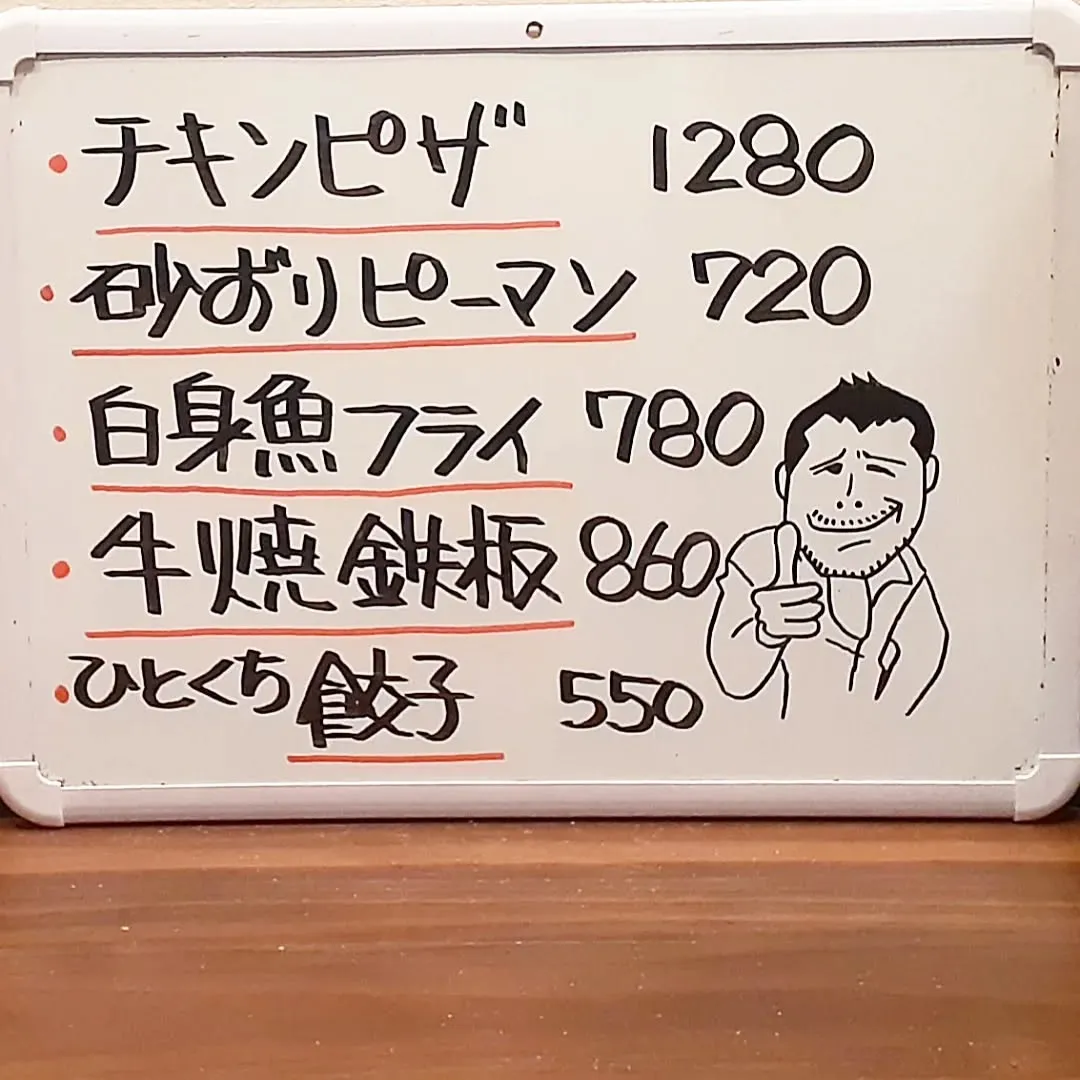 ・チキンピザ 1280
・砂ずりピーマン 720
・白身魚フライ 780
・牛焼鉄板 860
・ひとくち餃子 550